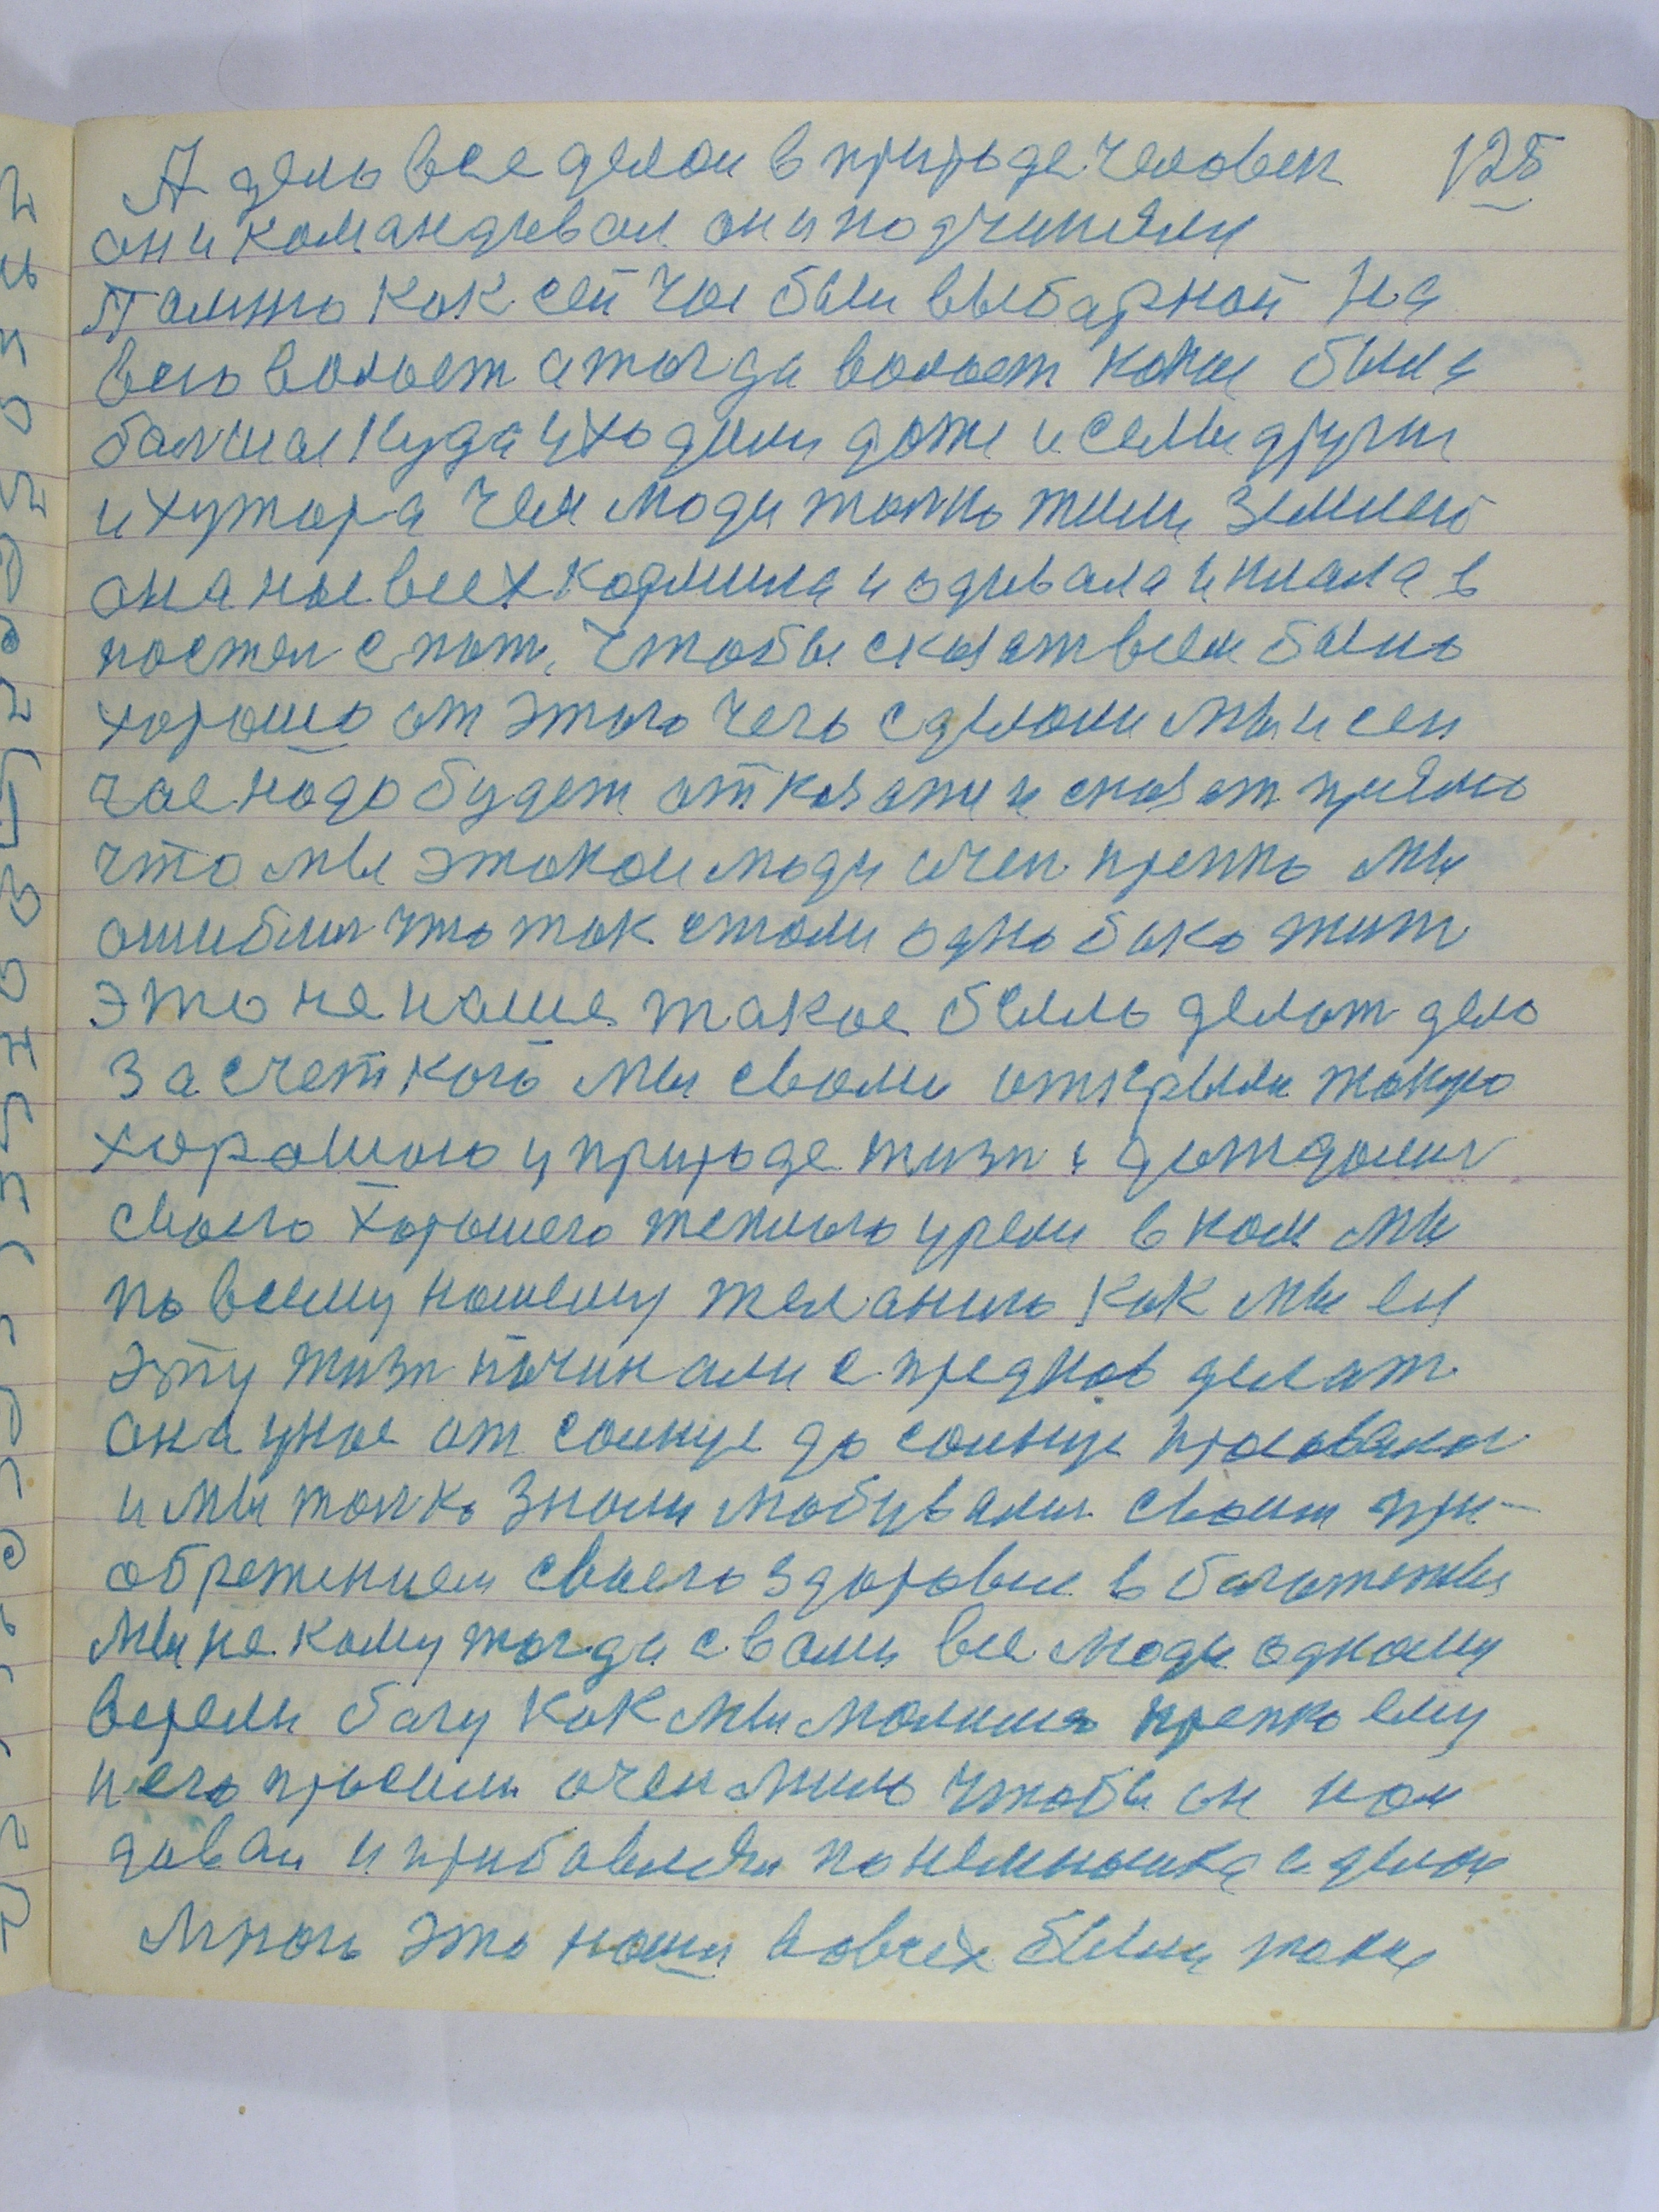 А дело все делал в природе человек 125
он и командывал он и подчинялси
Толпко как сей час был выбарной на
весь волост а тогда волост какая была
балшая куда уходили даже и семи други
и хутора чем люди толко жили землею
она нас всех кормила и одивала и клала в
постел спат, чтобы сказат всем было
хорошо от этого чего сделали мы и сей
час надо будет отказатя и сказат прямо
что мы этакаи люди очен крепко мы
ошиблис что так стали однобако жит
это не наше такое было делат дело
За счет кого мы с вами открыли такую
хорошою у природе жизн и дождалис
своего хорошего теплого уремя в ком мы
по всему нашему желанию как мы ея
эту жизн починали с предков делат
она у нас от солнце до солнце
и мы толко знали любувалис своим при-
обретением своего здоровия в багатстви
мы не кому тогда с вами все люди одному
верели богу как мы молилис крепко ему
и его просили очен мило чтобы он нам
давал и прибавлял по немношка сделал
много это наши вовсех были таки